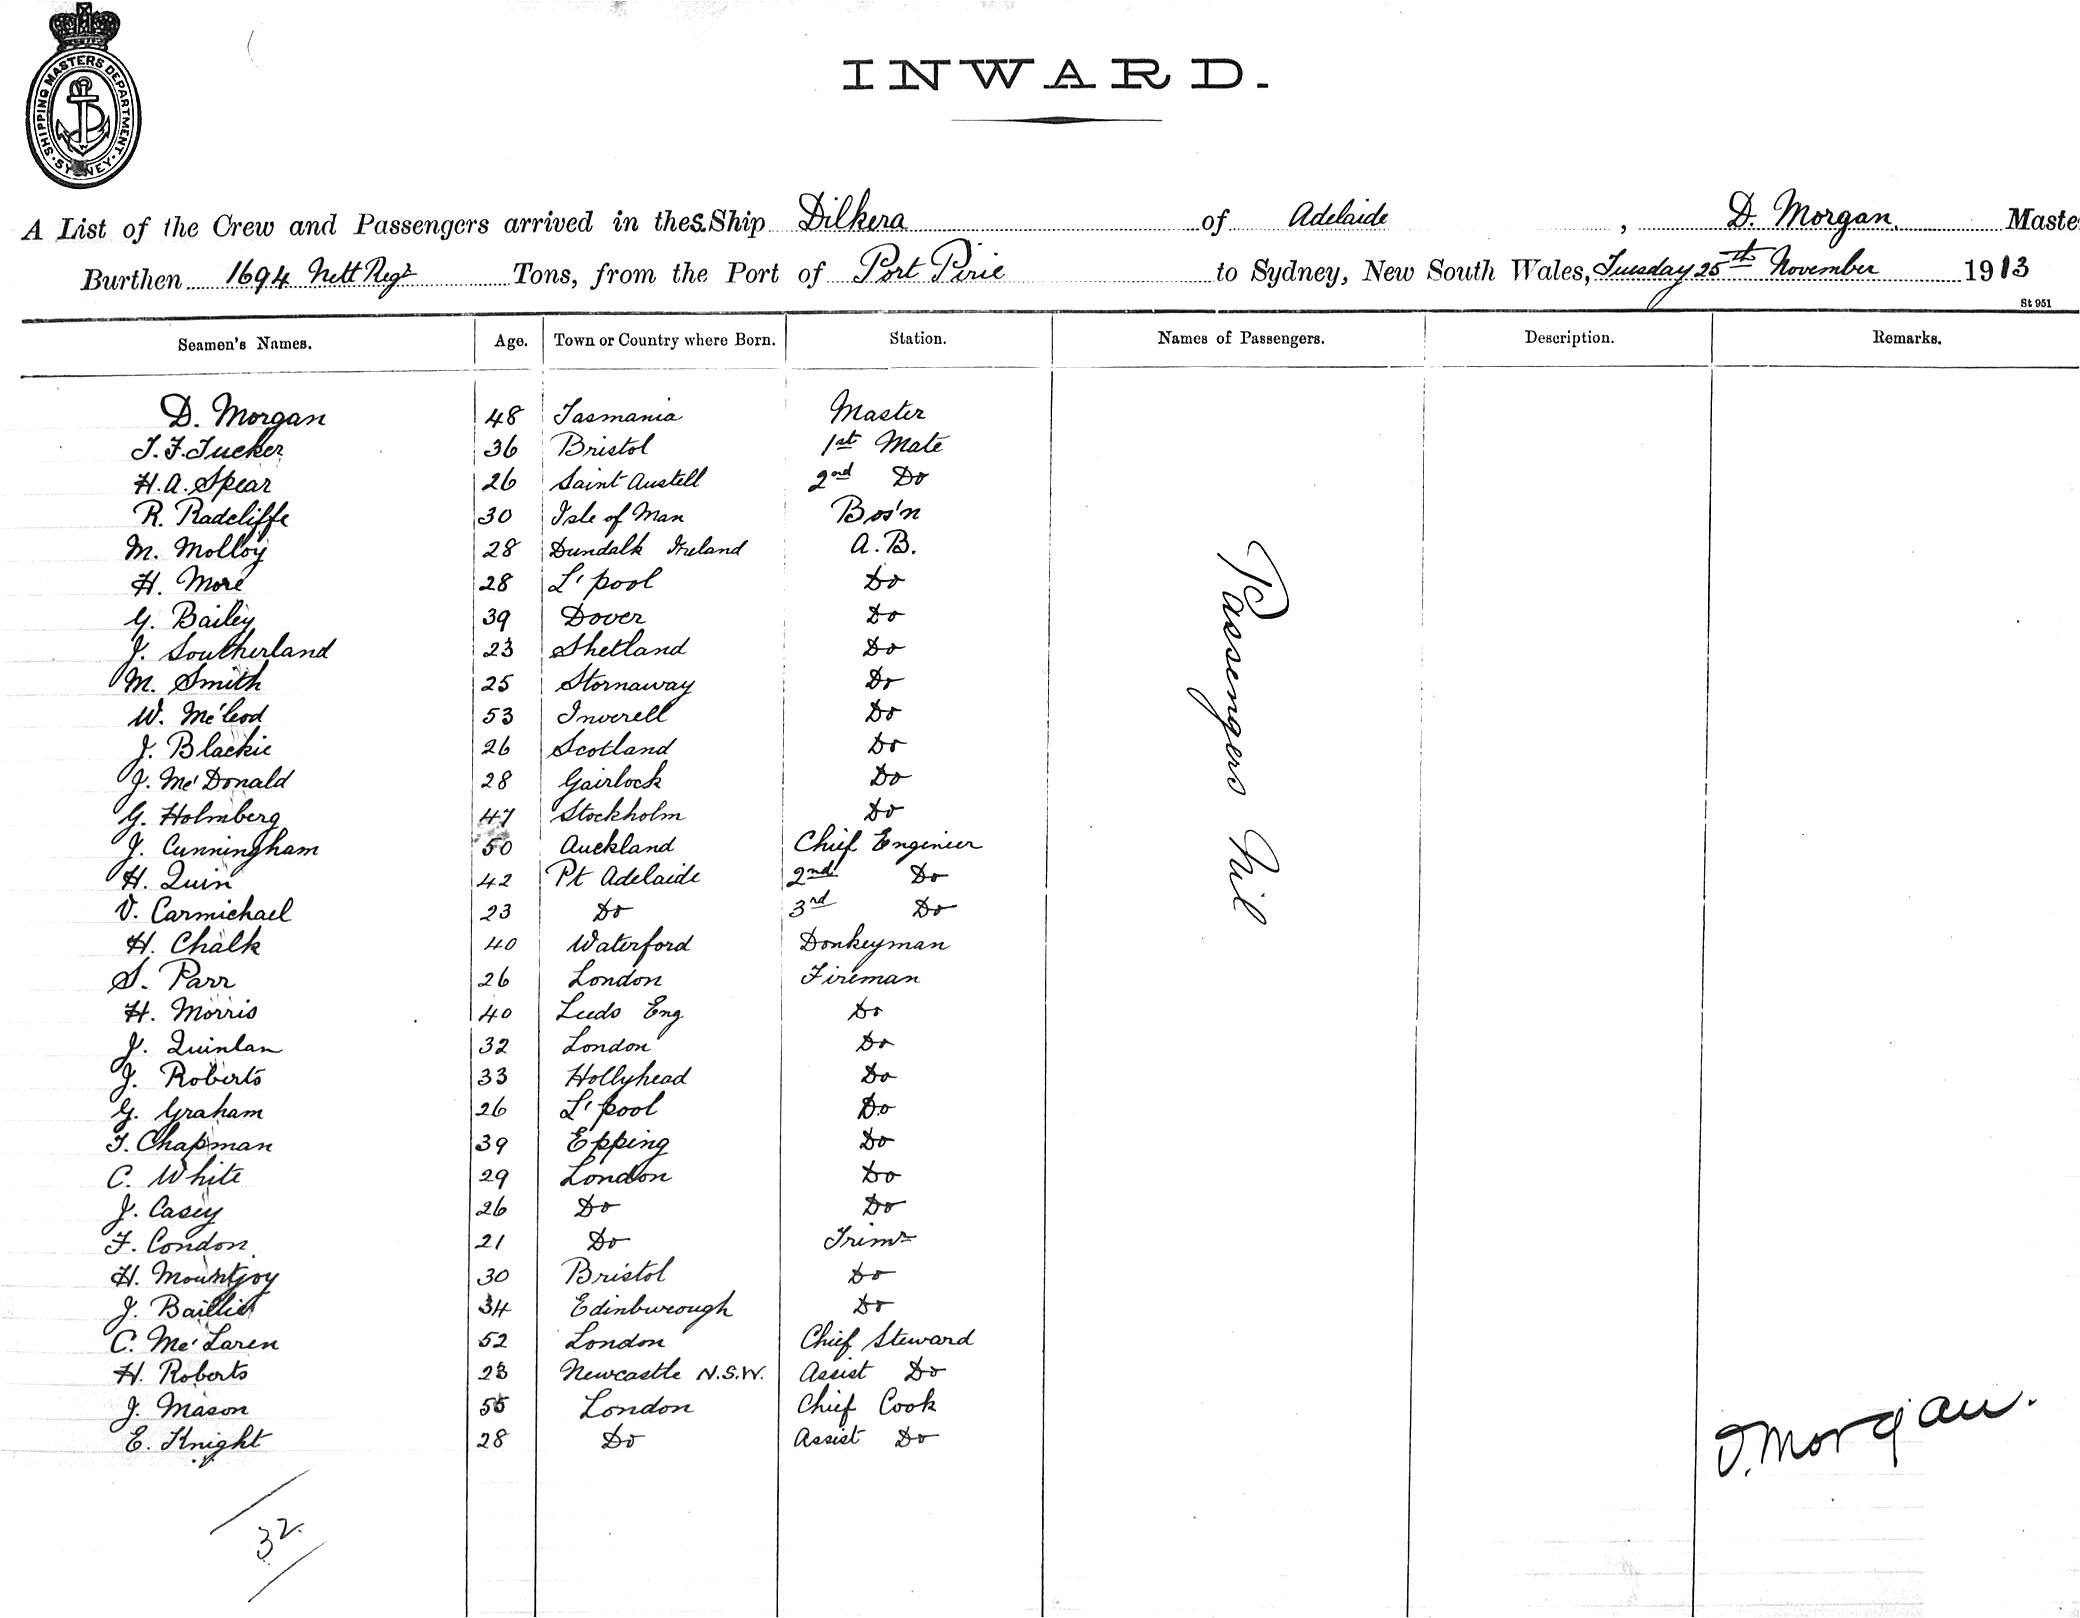 SHIPPING MASTERS DEPARTMENT · SYDNEY ·
INWARD.
A List of the Crew and Passengers arrived in the S.Ship Dilkera of Adelaide, D. Morgan. Maste
Burthen 1694 Nett Regr Tons, from the Port of Port Pirie to Sydney, New South Wales, Tuesday 25th November 1913
St 951
Seamen's Names. Age. Town or Country where Born. Station. Names of Passengers. Description. Remarks.
D. Morgan 48 Tasmania Master
T. F. Tucker 36 Bristol 1st Mate
H. A. Spear 26 Saint Austell 2nd Do
R. Radcliffe 30 Isle of Man Bos'n
M. Molloy 28 Dundalk Ireland A.B.
H. More 28 L'pool Do
G. Bailey 39 Dover Do
J. Southerland 23 Shetland Do
M. Smith 25 Stornaway Do
W. Mc'leod 53 Inverell Do
J. Blackie 26 Scotland Do
J. Mc'Donald 28 Gairlock Do
G. Holmberg 47 Stockholm Do
J. Cunningham 50 Auckland Chief Engineer
H. Quin 42 Pt Adelaide 2nd Do
V. Carmichael 23 Do 3rd Do
H. Chalk 40 Waterford Donkeyman
S. Parr 26 London Fireman
H. Morris 40 Leeds Eng Do
J. Quinlan 32 London Do
J. Roberts 33 Hollyhead Do
G. Graham 26 L'pool Do
T. Chapman 39 Epping Do
C. White 29 London Do
J. Casey 26 Do Do
F. Condon 21 Do Trimr
H. Mountjoy 30 Bristol Do
J. Baillie 34 Edinburough Do
C. Mc'Laren 52 London Chief Steward
H. Roberts 23 Newcastle N.S.W. Assist Do
J. Mason 55 London Chief Cook
E. Knight 28 Do Assist Do
Passengers Nil
D. Morgan.
32